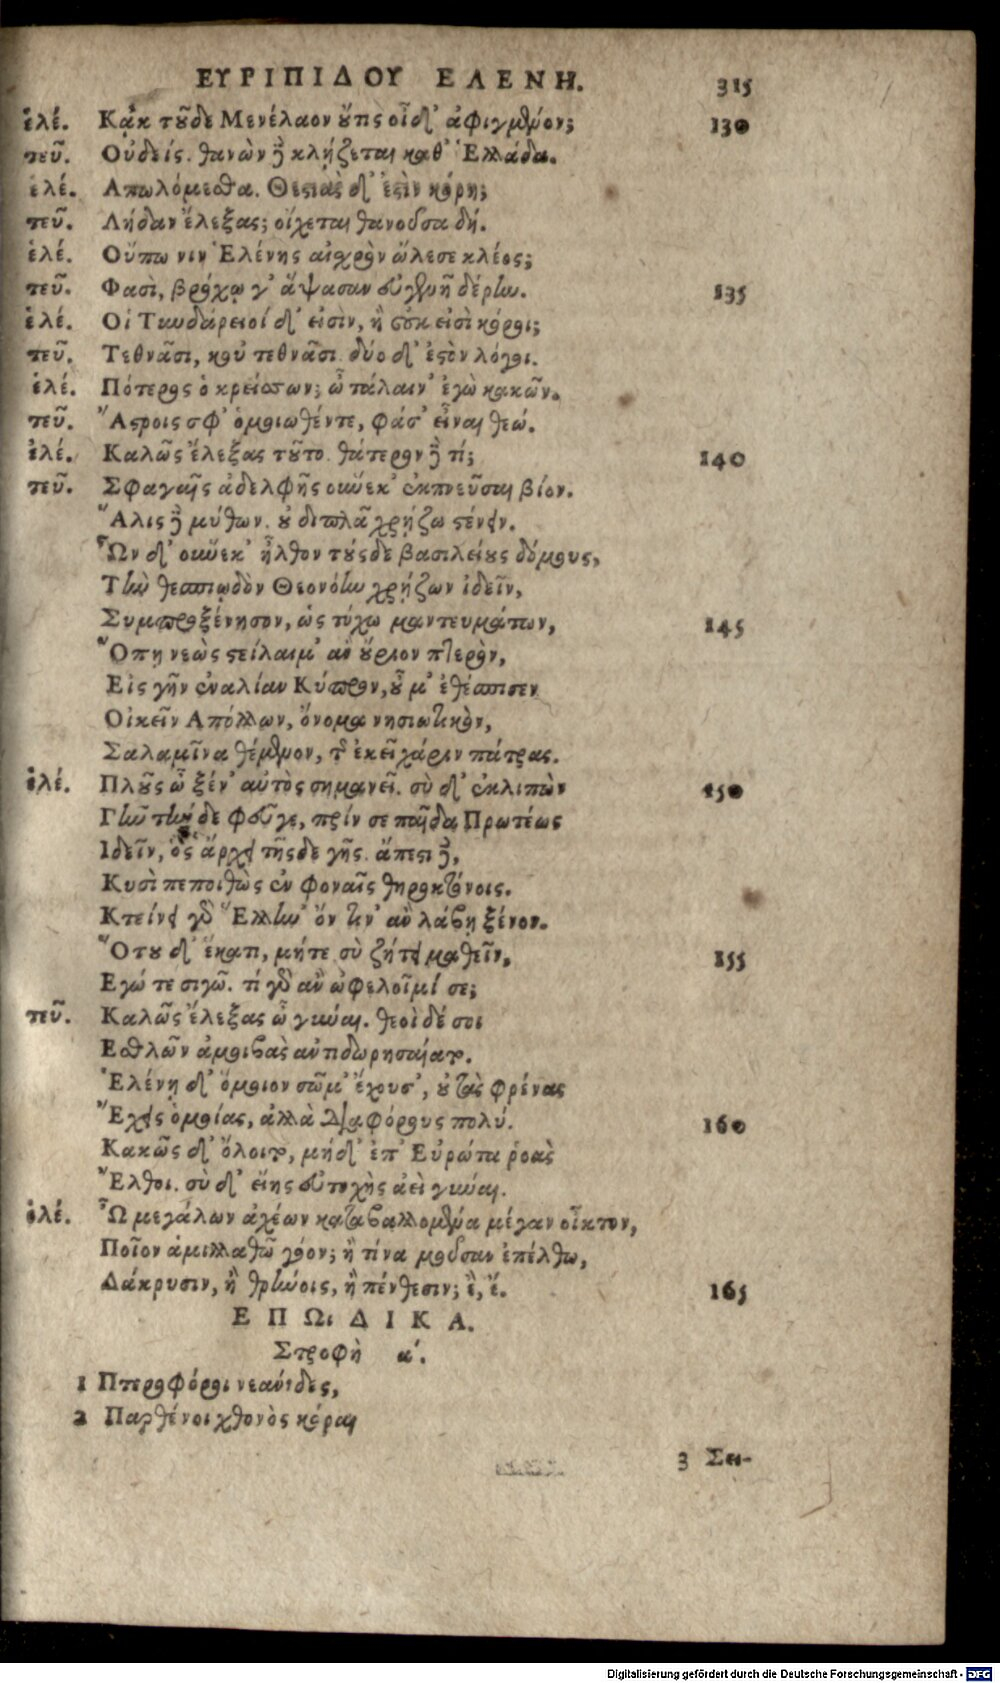 ΕΥΡΙΠΙΔΟΥ ΕΛΕΝΗ. 315
ἑλέ. Κᾀκ τοῦδε Μενέλαον οὔτις οἶδ' ἀφιγμένον; 130
τεῦ. Οὐδείς. θανὼν δὲ κλῄζεται καθ' Ἑλλάδα.
ἑλέ. Απωλόμεσθα. Θεστιὰς δ' ἐστὶν κόρη;
τεῦ. Λήδαν ἔλεξας; οἴχεται θανοῦσα δή.
ἑλέ. Οὔπω νιν Ἑλένης αἰχρὸν ὤλεσε κλέος;
τεῦ. Φασὶ, βρόχῳ γ' ἅψασαν εὐγενῆ δέρην. 135
ἑλέ. Οἱ Τυνδάρειοί δ' εἰσὶν, ἢ οὐκ εἰσὶ κόροι;
τεῦ. Τεθνᾶσι, κοὐ τεθνᾶσι. δύο δ' ἐστὸν λόγοι.
ἑλέ. Πότερος ὁ κρείσσων; ὦ τάλαιν' ἐγὼ κακῶν.
τεῦ. Ἄστροις σφ' ὁμοιωθέντε, φάσ' εἶναι θεώ.
ἑλέ. Καλῶς ἔλεξας τοῦτο. θάτερον δὲ τί; 140
τεῦ. Σφαγαῖς ἀδελφῆς οὕνεκ' ἐκπνεῦσαι βίον.
Ἅλις δὲ μύθων. οὐ διπλᾶ χρῄζω στένειν.
Ὧν δ' οὕνεκ' ἦλθον τούσδε βασιλείους δόμους,
Τὴν θεσπιῳδὸν Θεονόην χρῄζων ἰδεῖν,
Συμπροξένησον, ὡς τύχω μαντευμάτων, 145
Ὅπη νεὼς στείλαιμ' ἂν οὔριον πτερὸν,
Εἰς γῆν ἐναλίαν Κύπρον, οὗ μ' ἐθέσπισεν
Οἰκεῖν Απόλλων, ὄνομα νησιωτικὸν,
Σαλαμῖνα θέμενον, τῆς ἐκεῖ χάριν πάτρας.
ἑλέ. Πλοῦς ὦ ξέν' αὐτὸς σημανεῖ. σὺ δ' ἐκλιπὼν 150
Γῆν τήνδε φεῦγε, πρίν σε παῖδα Πρωτέως
Ιδεῖν, ὃς ἄρχει τῆσδε γῆς. ἄπεστι δὲ,
Κυσὶ πεποιθὼς ἐν φοναῖς θηροκτόνοις.
Κτείνει γὸ Ἕλλην' ὅν τιν' ἂν λάβῃ ξένον.
Ὅτου δ' ἕκατι, μήτε σὺ ζήτει μαθεῖν, 155
Εγώ τε σιγῶ. τί γὸ ἂν ὠφελοῖμί σε;
τεῦ. Καλῶς ἔλεξας ὦ γύναι. θεοὶ δέ σοι
Εσθλῶν ἀμοιβὰς ἀντιδωρησαίατο.
Ἑλένῃ δ' ὅμοιον σῶμ' ἔχουσ', οὐ τὰς φρένας
Ἔχεις ὁμοίας, ἀλλὰ διαφόρους πολύ. 160
Κακῶς δ' ὄλοιτο, μήδ' ἐπ' Εὐρώτα ῥοὰς
Ἔλθοι. σὺ δ' εἴης εὐτυχὴς ἀεὶ γύναι.
ἑλέ. Ὦ μεγάλων ἀχέων καταβαλλομένα μέγαν οἶκτον,
Ποῖον ἁμιλλαθῶ γόον; ἢ τίνα μοῦσαν ἐπέλθω,
Δάκρυσιν, ἢ θρήνοις, ἢ πένθεσιν; ἒ, ἔ. 165
ΕΠΩιΔΙΚΑ.
Στροφὴ α'.
1 Πτεροφόροι νεάνιδες,
2 Παρθένοι χθονὸς κόραι
3 Σει-
Digitalisierung gefördert durch die Deutsche Forschungsgemeinschaft - DFG